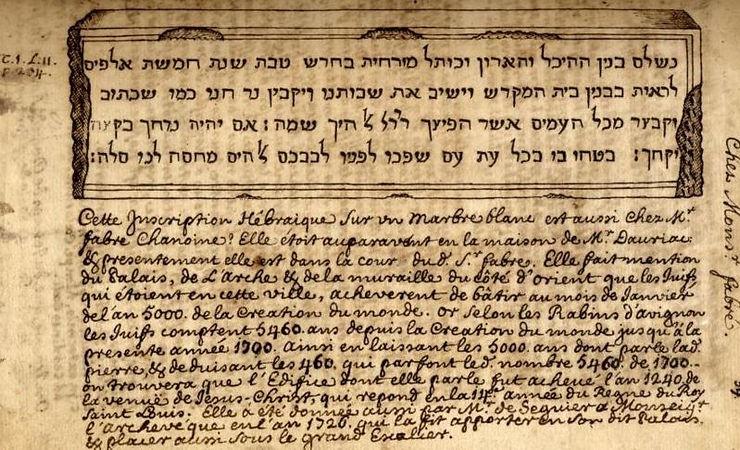 T.1. L.II.
p. 204.
נשלם בנין ההיכל והארון וכותל מזרחית בחדש טבת שנת חמשת אלפים
לראות בבנין בית המקדש וישיב את שבותנו ויקבץ נדחנו כמו שכתוב
וקבצך מכל העמים אשר הפיצך שמה: אם יהיה נדחך בקצה
יקחך: בטחו בו בכל עת עם שפכו לפניו לבבכם מחסה לנו סלה:
Cette Inscription Hébraique sur vn Marbre blanc est aussi chez Mr.
fabre Chanoine. Elle étoit auparavant en la maison de Mr. Dauriac
& presentement elle est dans la cour du d. Sr. fabre. Elle fait mention
du Palais, de L'arche & de la muraille du côté d'Orient que les Juifs
qui étoient en cette ville, acheverent de bâtir au mois de Janvier
de l'an 5000. de la Creation du monde. Or selon les Rabins d'avignon
les Juifs comptent 5460. ans depuis la Creation du monde jusqu'à la
presente année 1700. Ainsi en laissant les 5000. ans dont parle lad.
pierre, & deduisant les 460. qui parfont led. nombre 5460. de 1700.
on trouvera que l'Edifice dont elle parle fut achevé l'an 1240. de
la venuë de Jesus-Christ, qui repond en la 14e. année du Regne du Roy
Saint Louis. Elle a été donnée aussi par Mr. de Seguier a Monseigr.
l'archevêque en l'an 1726. qui la fit apporter en son dit Palais,
& placer aussi sous le grand Escalier.
Chez Monsr. fabre.